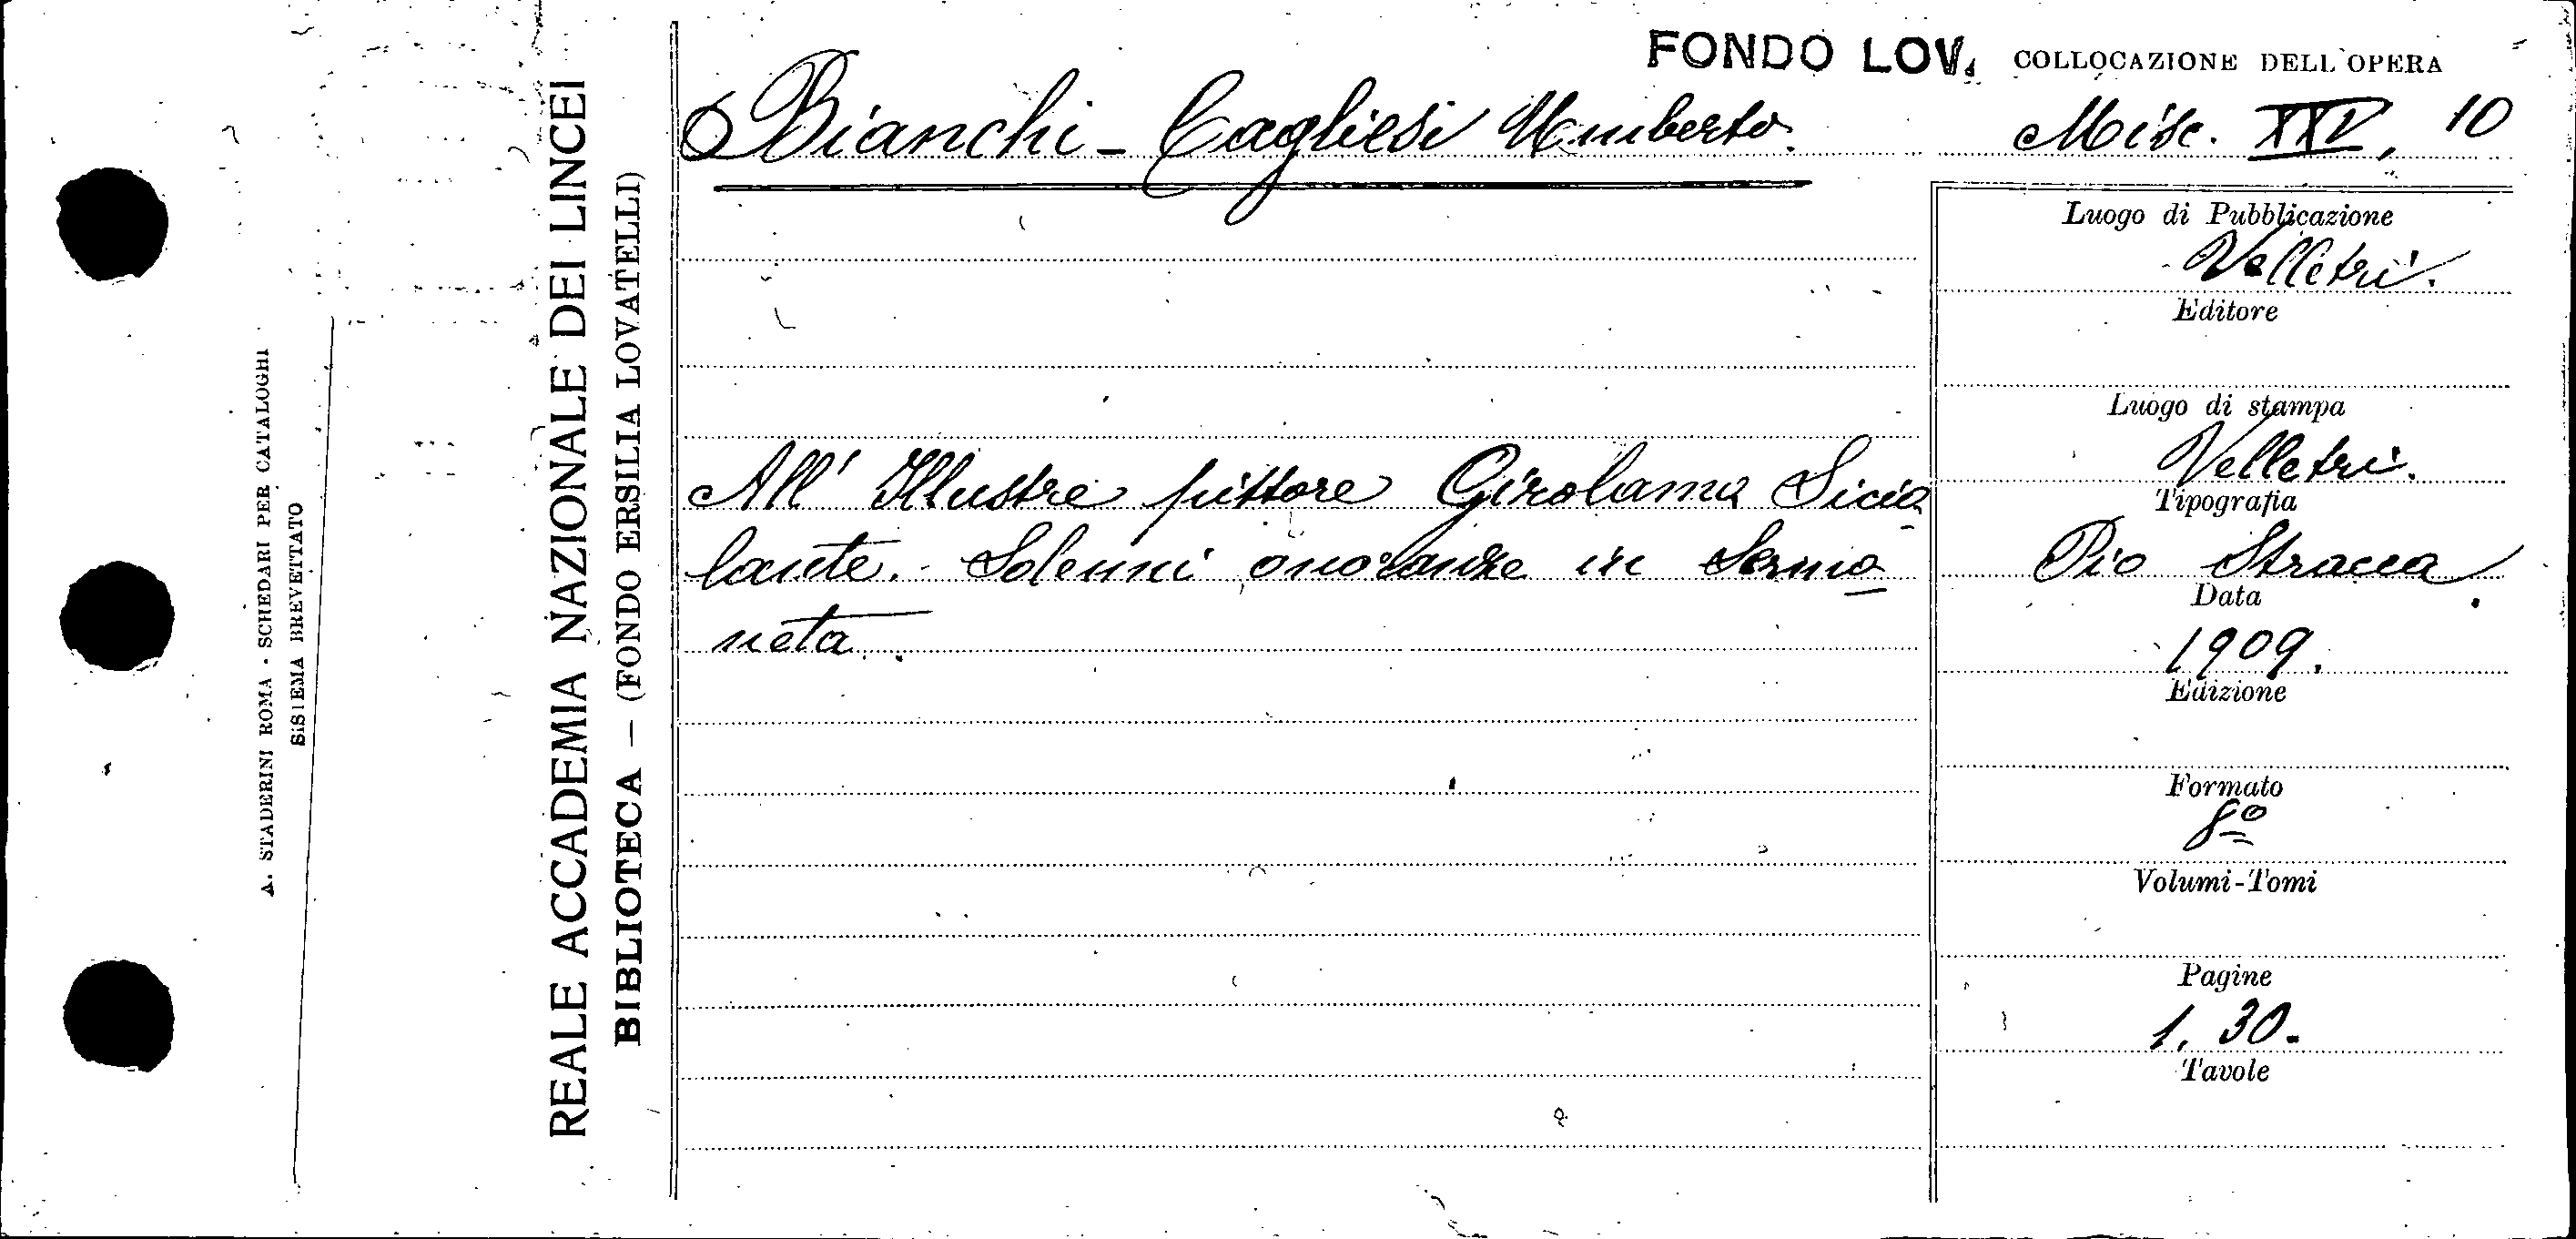 A. STADERINI ROMA - SCHEDARI PER CATALOGHI
SISTEMA BREVETTATO
REALE ACCADEMIA NAZIONALE DEI LINCEI
BIBLIOTECA — (FONDO ERSILIA LOVATELLI)
FONDO LOV.
COLLOCAZIONE DELL'OPERA
Bianchi-Cagliesi Umberto.
Misc. XXV, 10
All' Illustre pittore Girolamo Sicio
lante. - Solenni onoranze in Sermo
neta.
Luogo di Pubblicazione
Velletri.
Editore
Luogo di stampa
Velletri.
Tipografia
Pio Stracca.
Data
1909.
Edizione
Formato
8º
Volumi-Tomi
Pagine
1. 30.
Tavole